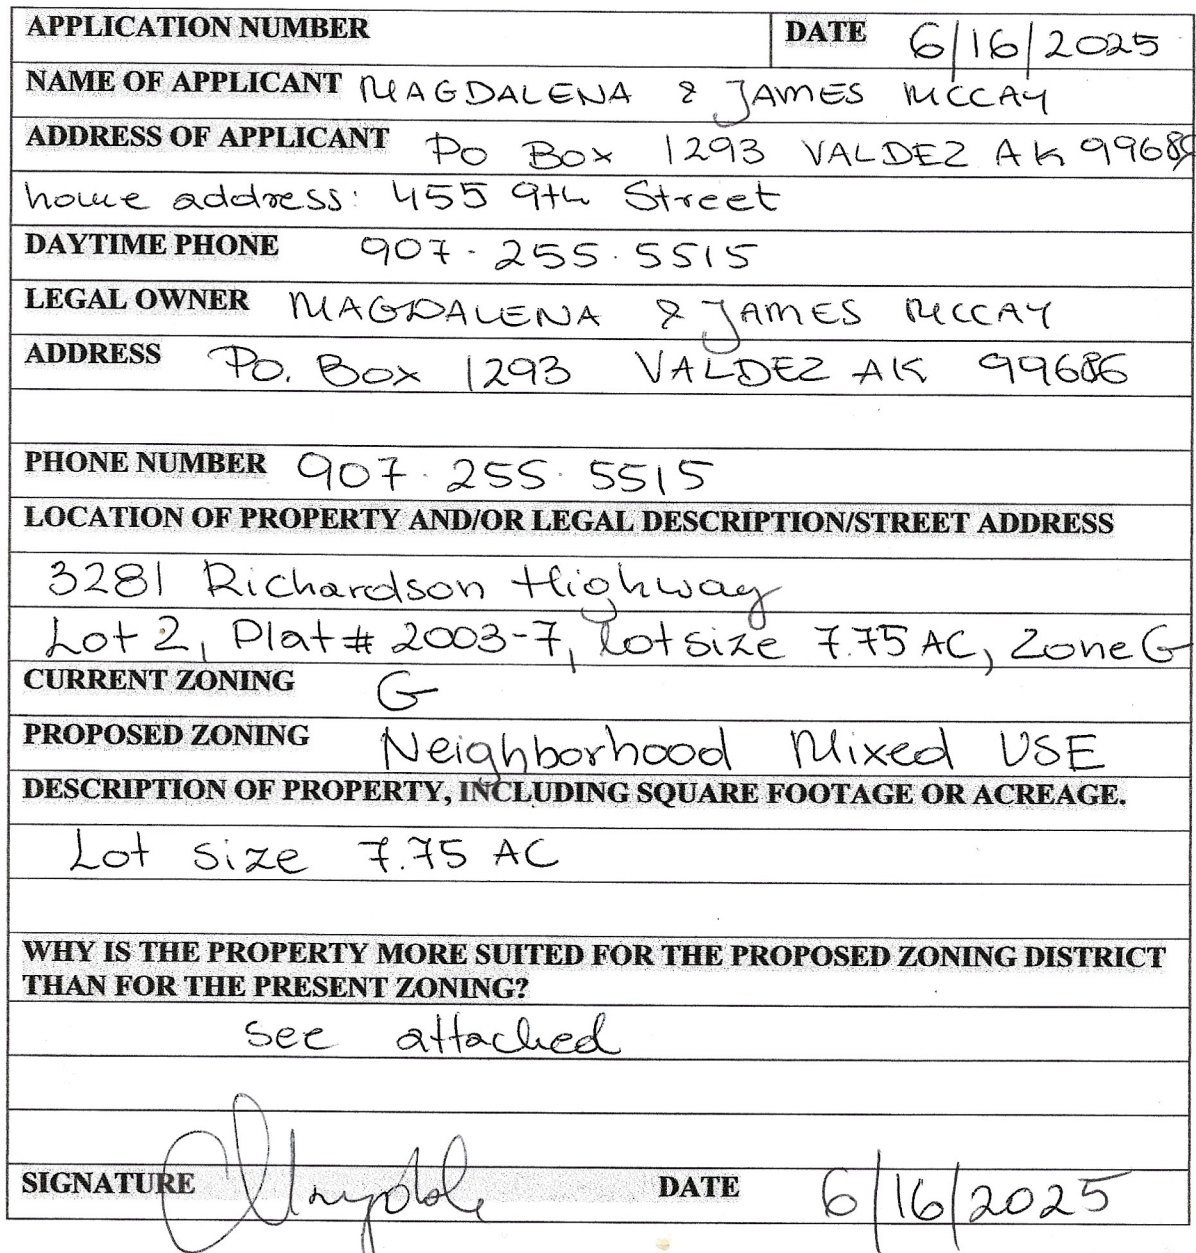 APPLICATION NUMBER DATE 6/16/2025
NAME OF APPLICANT MAGDALENA & JAMES MCCAY
ADDRESS OF APPLICANT PO BOX 1293 VALDEZ AK 99686
home address: 455 9th Street
DAYTIME PHONE 907-255.5515
LEGAL OWNER MAGDALENA & JAMES MCCAY
ADDRESS PO. BOX 1293 VALDEZ AK 99686
PHONE NUMBER 907.255.5515
LOCATION OF PROPERTY AND/OR LEGAL DESCRIPTION/STREET ADDRESS
3281 Richardson Highway
Lot 2, Plat# 2003-7, lot size 7.75 AC, Zone G
CURRENT ZONING G
PROPOSED ZONING Neighborhood Mixed USE
DESCRIPTION OF PROPERTY, INCLUDING SQUARE FOOTAGE OR ACREAGE.
Lot size 7.75 AC
WHY IS THE PROPERTY MORE SUITED FOR THE PROPOSED ZONING DISTRICT
THAN FOR THE PRESENT ZONING?
see attached
SIGNATURE DATE 6/16/2025